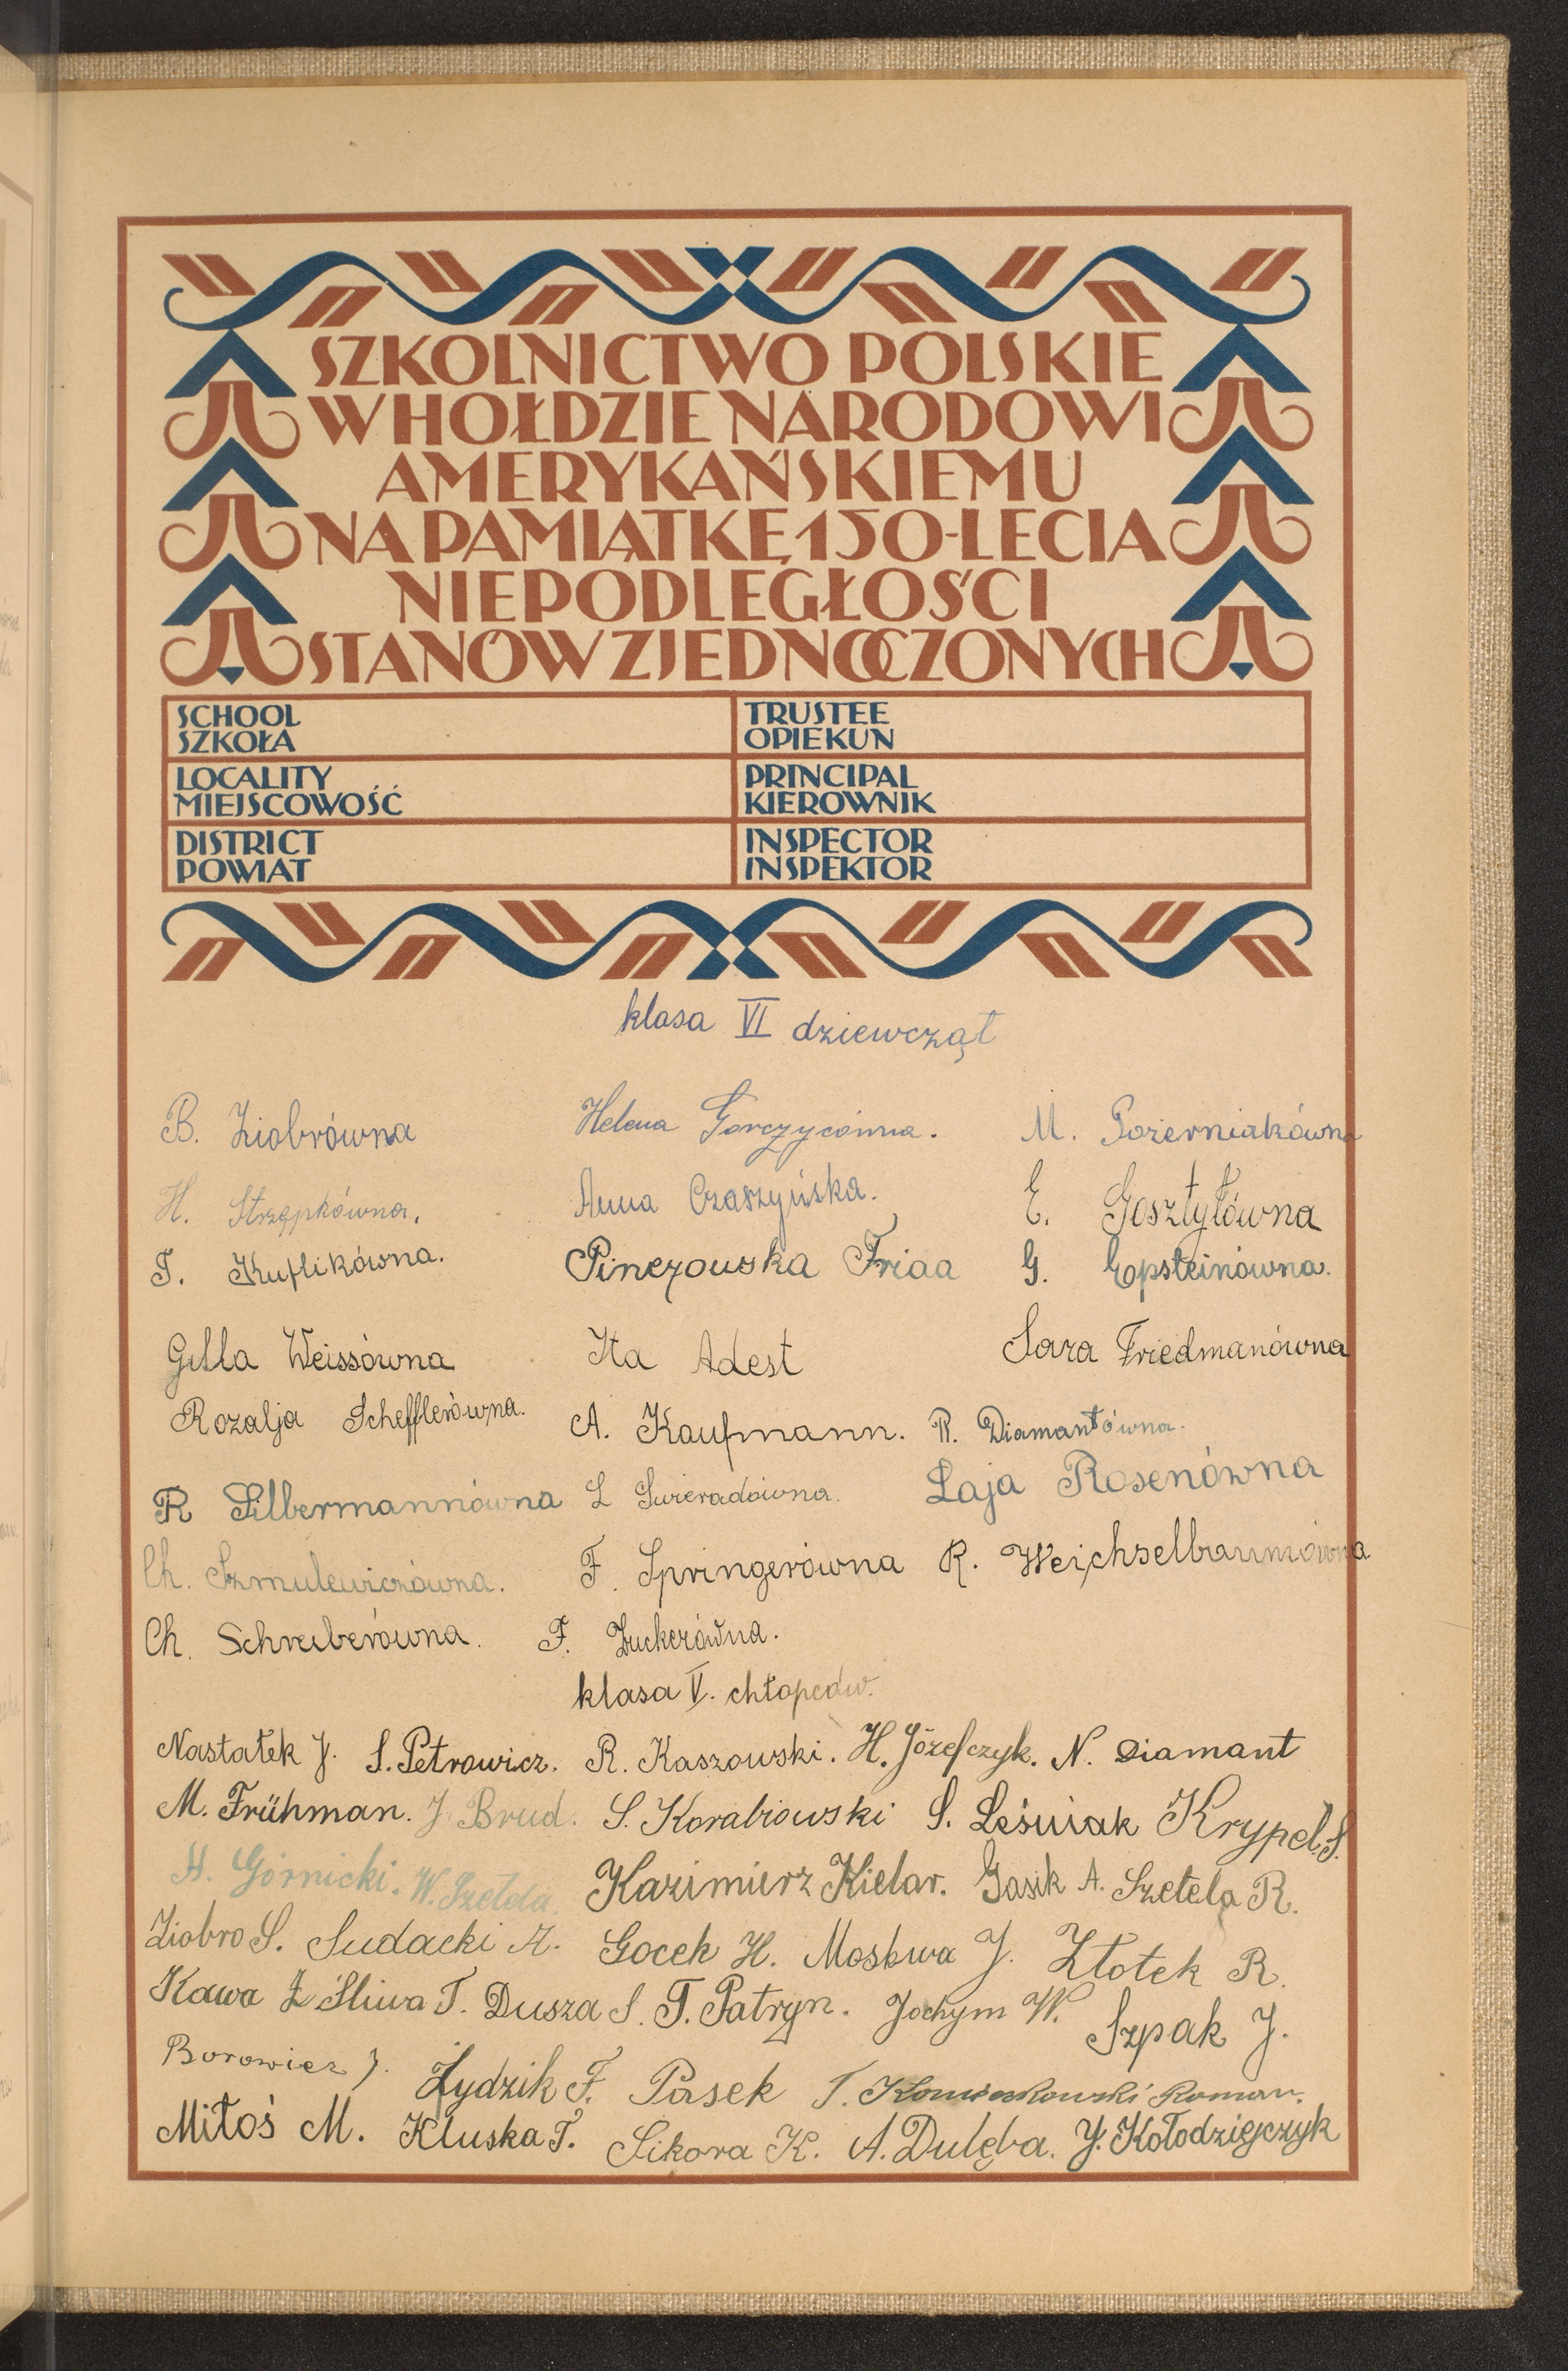 SZKOLNICTWO POLSKIE
W HOŁDZIE NARODOWI
AMERYKAŃSKIEMU
NA PAMIĄTKĘ 150-LECIA
NIEPODLEGŁOŚCI
STANÓW ZJEDNOCZONYCH
SCHOOL
SZKOŁA
TRUSTEE
OPIEKUN
LOCALITY
MIEJSCOWOŚĆ
PRINCIPAL
KIEROWNIK
DISTRICT
POWIAT
INSPECTOR
INSPEKTOR
klasa VI dziewcząt
B. Ziobrówna Helena Gorczycówna. M. Pozierniakówna
H. Strzępkówna. Anna Czaszyńska. E. Gosztyłówna
T. Kuflikówna. Pinczowska Frida G. Epsteinówna.
Gilla Weissówna Ita Adest Sara Friedmanówna
Rozalja Schefflerówna. A. Kaufmann. R. Diamantówna.
R Silbermannówna L Świeradówna. Łaja Rosenówna
Ch. Szmulewiczówna. F. Springerówna R. Weichselbaumówna
Ch. Schreiberówna. F. Zuckerówna.
klasa V. chłopców.
Nastałek J. S. Petrowicz. R. Kaszowski. H. Józefczyk. N. Diamant
M. Frühman. J Brud. S. Korabiowski S. Leśniak Krypel S.
H. Górnicki. W. Szetela. Kazimierz Kielar. Gasik A. Szetela R.
Ziobro S. Sudacki A. Gocek H. Moskwa J. Złotek R.
Kawa Z Śliwa T. Dusza S. T. Patryn. Jochym W. Szpak J.
Borowiec J. Żydzik F. Pasek T. Roman.
Miłoś M. Kluska T. Sikora K. A. Dulęba. J. Kołodziejczyk